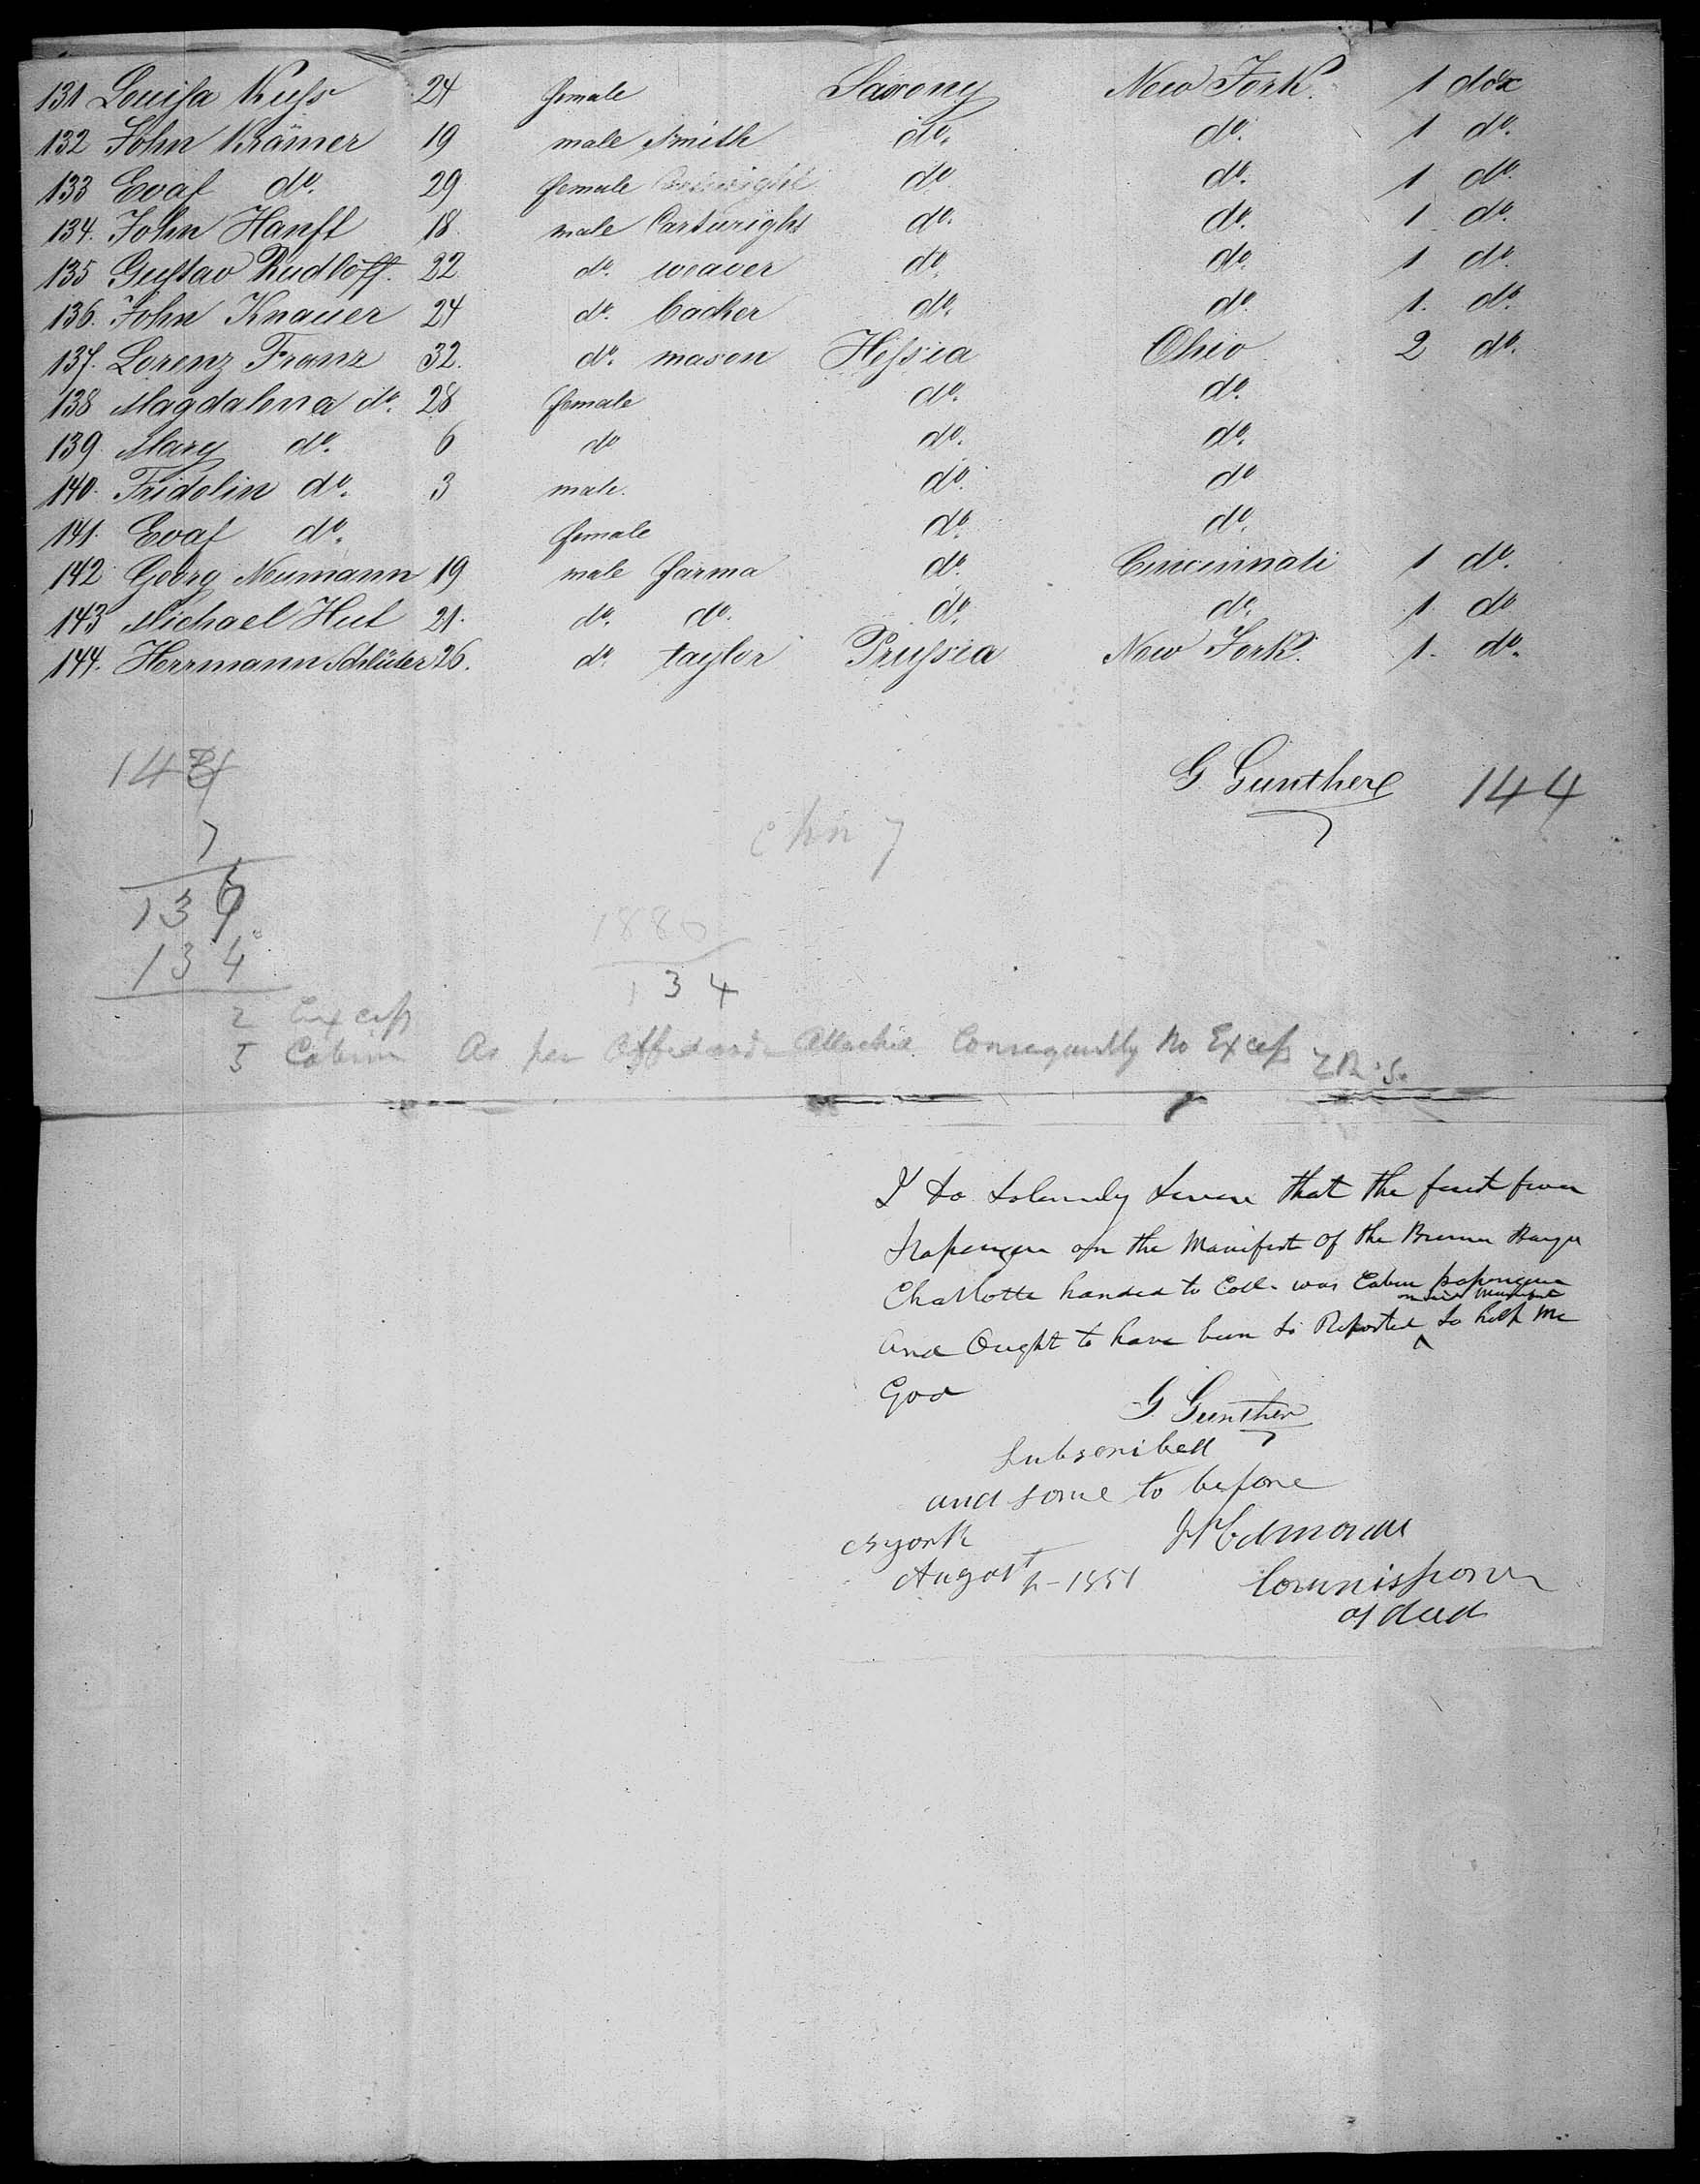 131 Louisa Kuss 24 female Saxony New York. 1 box
132 John Krämer 19 male Smith do. do. 1 do.
133 Evaf do. 29 female do do. 1 do.
134. John Hanft 18 male Cartwright do. do. 1 do.
135 Gustav Rudloff. 22 do. weaver do. do. 1 do.
136. John Knauer 24 do. backer do. do. 1. do.
137. Lorenz Franz 32. do. mason Hessia Ohio 2 do.
138 Magdalena do. 28 female do. do.
139 Mary do. 6 do do. do.
140. Fridolin do. 3 male. do. do
141. Evaf do. female do. do.
142 Georg Neumann 19 male farma do. Cincinnati 1 do.
143 Michael Hut 21. do. do. do. do. 1 do
144. Herrmann Schlüter 26. do. taylor Prussia New York. 1. do.
G. Gunther 144
144
7
chn 7
136
134
1880
134
2 Excess
5 Cabin As per Affidavid Attached Consequently No Excess
I do Solemnly Swear that the first
Passengers on the Manifest of the Bremen Barque
Charlotte handed to Coll. was Cabin passengers
on said Manifest
and Ought to have been so Reported So help Me
God
G. Gunther
Subscribed
and sorne to before
N york J W Edmonds
August 1851 Commissioner
of deed